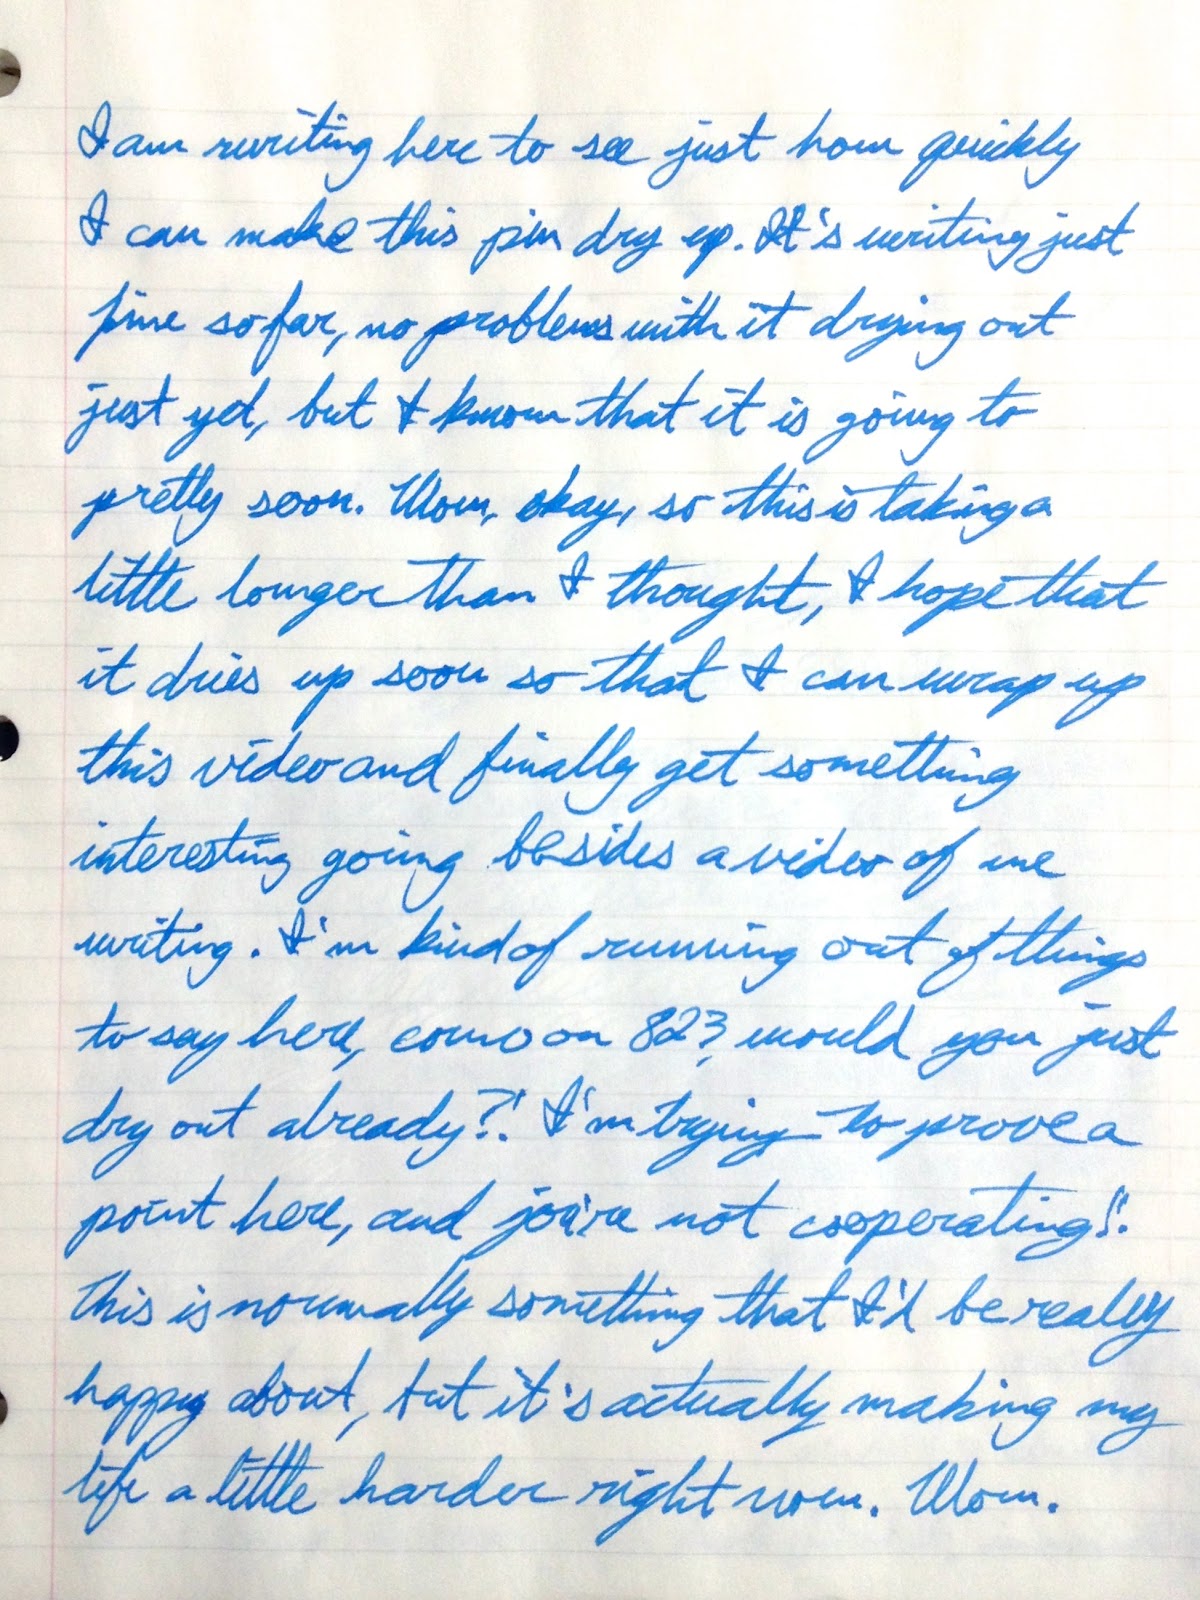 I am writing here to see just how quickly
I can make this pen dry up. It's writing just
fine so far, no problems with it drying out
just yet, but I know that it is going to
pretty soon. Wow, okay, so this is taking a
little longer than I thought, I hope that
it dries up soon so that I can wrap up
this video and finally get something
interesting going besides a video of me
writing. I'm kind of running out of things
to say here, come on 823, would you just
dry out already?! I'm trying to prove a
point here, and you're not cooperating!!
This is normally something that I'd be really
happy about, but it's actually making my
life a little harder right now. Wow.